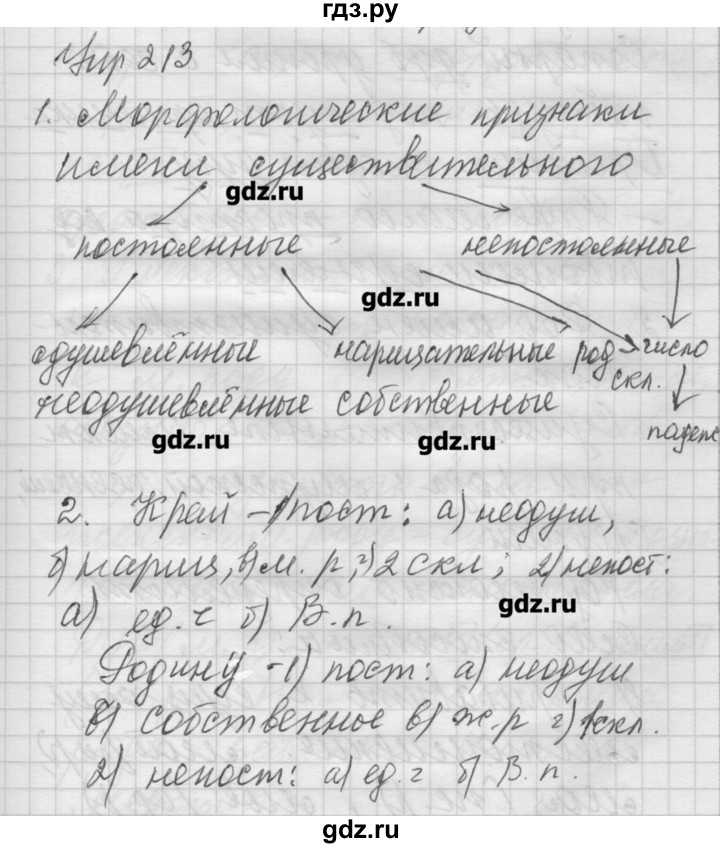 гдз.ру
Упр 213
1. Морфологические признаки
имени существительного
gdz.ru
постоянные непостоянные
gdz.ru
одушевлённые нарицательные род число
скл.
неодушевлённые собственные
падеж
gdz.ru gdz.ru
2. Край - 1) пост: а) неодуш,
б) нариц, в) м. р, г) 2 скл; 2) непост:
gdz.ru
а) ед. ч б) В. п.
Родину - 1) пост: а) неодуш
б) собственное в) ж. р г) 1 скл.
2) непост: а) ед. ч б) В. п.
gdz.ru